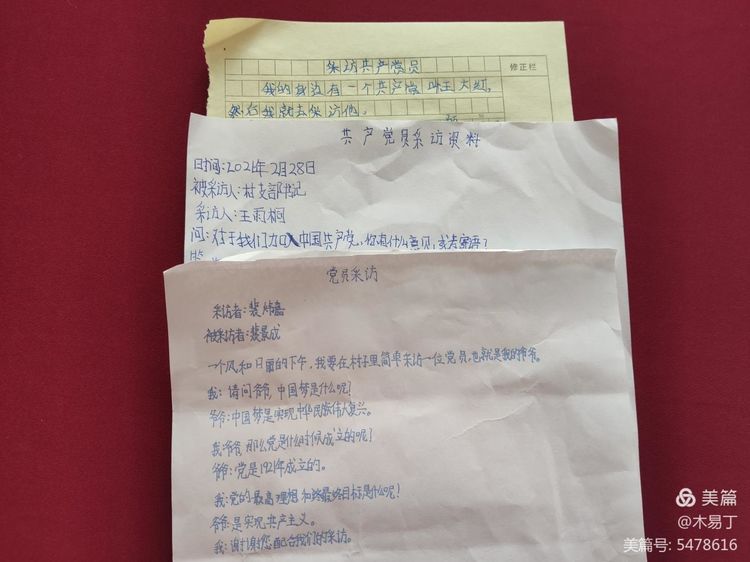 采访共产党员
修正栏
我的身边有一个共产党叫王大红,
然后我就去采访他。
共产党员采访资料
日时间:2021年2月28日
被采访人:村支部书记
采访人:王雨桐
问:对于我们加入中国共产党,你有什么意见,或者寄语?
党员采访
采访者:裴炜嘉
被采访者:裴景成
一个风和日丽的下午,我要在村子里简单采访一位党员,也就是我的爷爷。
我:请问爷爷,中国梦是什么呢?
爷爷:中国梦是实现中华民族伟大复兴。
我:爷爷,那么党是什么时候成立的呢?
爷爷:党是1921年成立的。
我:党的最高理想和终最终目标是什么呢!
爷爷:是实现共产主义。
我:谢谢您配合我们的采访。
美篇
@木易丁
美篇号: 5478616